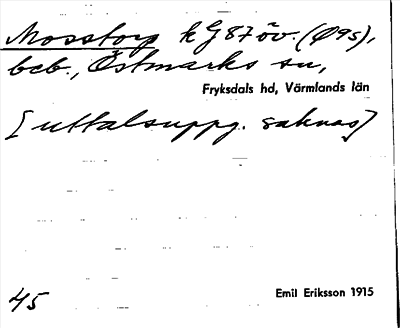 Mosstorp k G 87 öv. (Ø 95),
beb., Östmarks sn,
Fryksdals hd, Värmlands län
[uttalsuppg. saknas]
45
Emil Eriksson 1915